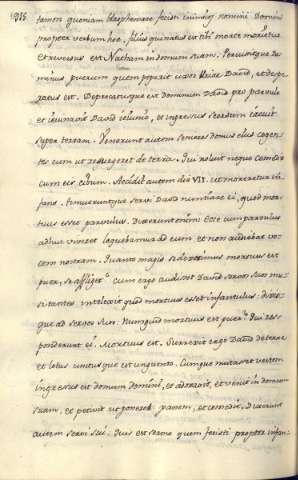 215
tamen quoniam blasphemare fecisti inimicos nomini Domini
propter verbum hoc, filius qui natus est tibi morte morietur
et reversus est Nathan in domum suam. Percussitque do
minus puerum quem peperit uxor Uriae David, et despe
ratus est. Deprecatusque est dominum David pro parvulo
et ieiunavit David ieiunio, et ingressus seorsum iacuit
super terram. Venerunt autem seniores domus eius cogen
tes eum ut resurgeret de terra. Qui noluit neque comedit
cum eis cibum. Accidit autem die VII. ut moreretur in
fans. timueruntque servi David nuntiare ei, quod mor
tuus esset parvulus. Dixerunt enim: Ecce cum parvulus
adhuc viveret loquebamur ad eum et non audiebat vo
cem nostram. Quanto magis si dixerimus mortuus est
puer, se affliget? cum ergo audisset David servos suos mu
sitantes intellexit quod mortuus esset infantulus: dixit
que ad servos suos. Numquid mortuus est puer? Qui res
ponderunt ei. Mortuus est. Surrexit ergo David de terra
et lotus unctusque est unguento. Cumque mutasset vestem
ingressus est domum domini, et adoravit, et venit in domum
suam, et petivit ut ponerent panem, et comedit. Dixerunt
autem servi sui. Quis est sermo quem fecisti propter infan-